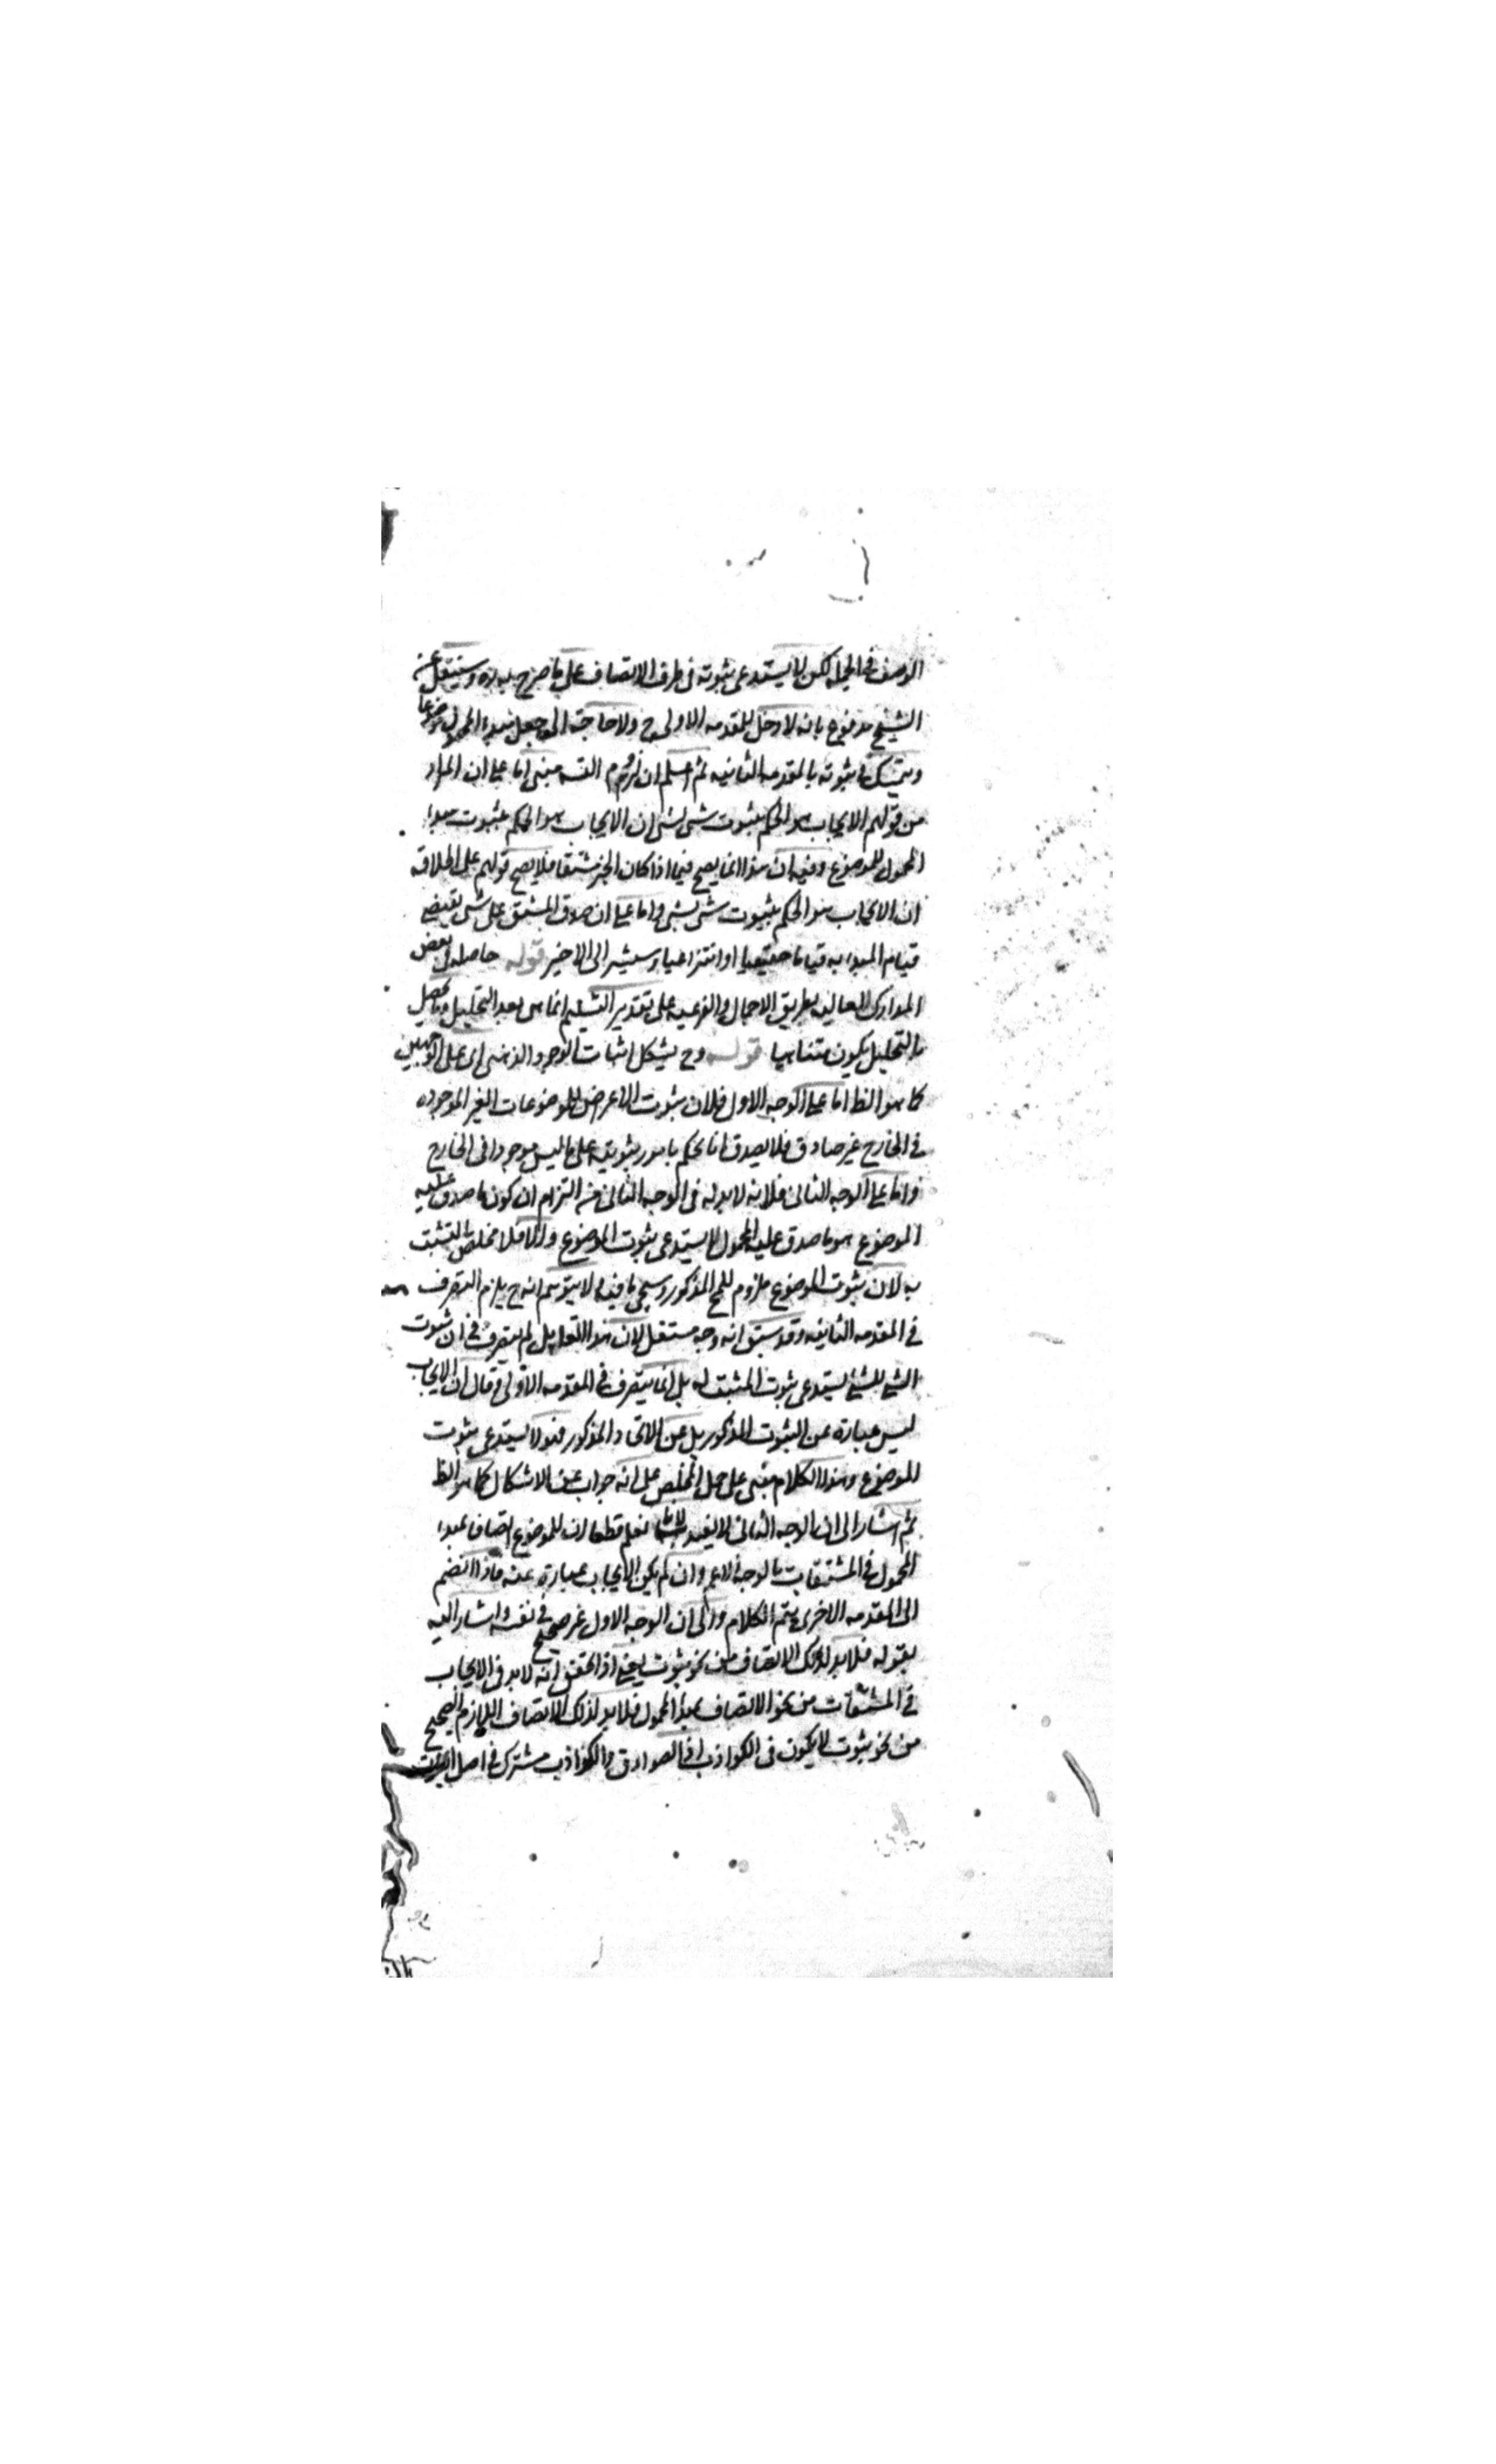 الوصف في الجملة لكن لا يستدعى ثبوته فى ظرف الاتصاف على ما صرح به وسينقل عن
الشيخ مدفوع بانه لا دخل للمقدمه الاولى ح ولا حاجة الى جعل مبدء المحمول موضوعا
ويتمسك فى ثبوته بالمقدمه الثانيه ثم اعلم ان لزوم التسه مبنى اما على ان المراد
من قولهم الايجاب هو الحكم بثبوت شى لشى ان الايجاب هو الحكم بثبوت مبدء
المحمول للموضوع وفيه ان هذا انما يصح فيما اذا كان الخبر مشتقا فلا يصح قولهم على اطلاقه
ان الايجاب هو الحكم بثبوت شى لشى واما على ان صدق المشتق على شى يقتضى
قيام المبدء به قياما حقيقيا او انتزاعيا وسيشير الى الاخير قوله حاصله فى بعض
المدارك العاليه بطريق الاجمال والفرعيه على تقدير التسليم انما هى بعد التحليل وما يحصل
بالتحليل يكون متناهيا قوله وح يشكل اثبات الوجود الذهنى اى على الوجهين
كما هو الظ اما على الوجه الاول فلان ثبوت الاعراض للموضوعات الغير الموجوده
فى الخارج غير صادق فلا يصدق انا نحكم بامور ثبوتيه على ما ليس موجودا فى الخارج
واما على الوجه الثانى فلانه لابد له فى الوجه الثانى من التزام ان كون ما صدق عليه
الموضوع هو ما صدق عليه المحمول لا يستدعى ثبوت الموضوع والا فلا مخلص بالتشبث
به لان ثبوت الموضوع ملزوم للمح المذكور وسيجى ما فيه لا يتوهم انه ح يلزم التصرف
فى المقدمه الثانيه وقد سبق انه وجه مستقل لان هذا القايل لم يتصرف فى ان ثبوت
الشى للشى يستدعى ثبوت المثبت له بل انما يتصرف فى المقدمه الاولى وقال ان الايجاب
ليس عبارة عن الثبوت المذكور بل عن الاتحاد المذكور فهو لا يستدعى ثبوت
الموضوع وهذا الكلام مبنى على حمل المخلص على انه جواب عن الاشكال كما هو الظ
ثم اشار الى ان الوجه الثانى لا يفيد لانا نعلم قطعا ان للموضوع اتصاف بمبدء
المحمول فى المشتقات بالوجه الاعم وان لم يكن الايجاب عبارة عنه فاذا انضم
الى المقدمه الاخرى يتم الكلام والى ان الوجه الاول غير صحيح فى نفسه واشار اليه
بقوله فلابد لذلك الاتصاف من نحو ثبوت يعنى اذا تحقق انه لابد فى الايجاب
فى المشتقات من نحو الاتصاف بمبدأ المحمول فلابد لذلك الاتصاف اللازم الصحيح
من نحو ثبوت لا يكون فى الكواذب اذ الصوادق والكواذب مشترك فى اصل